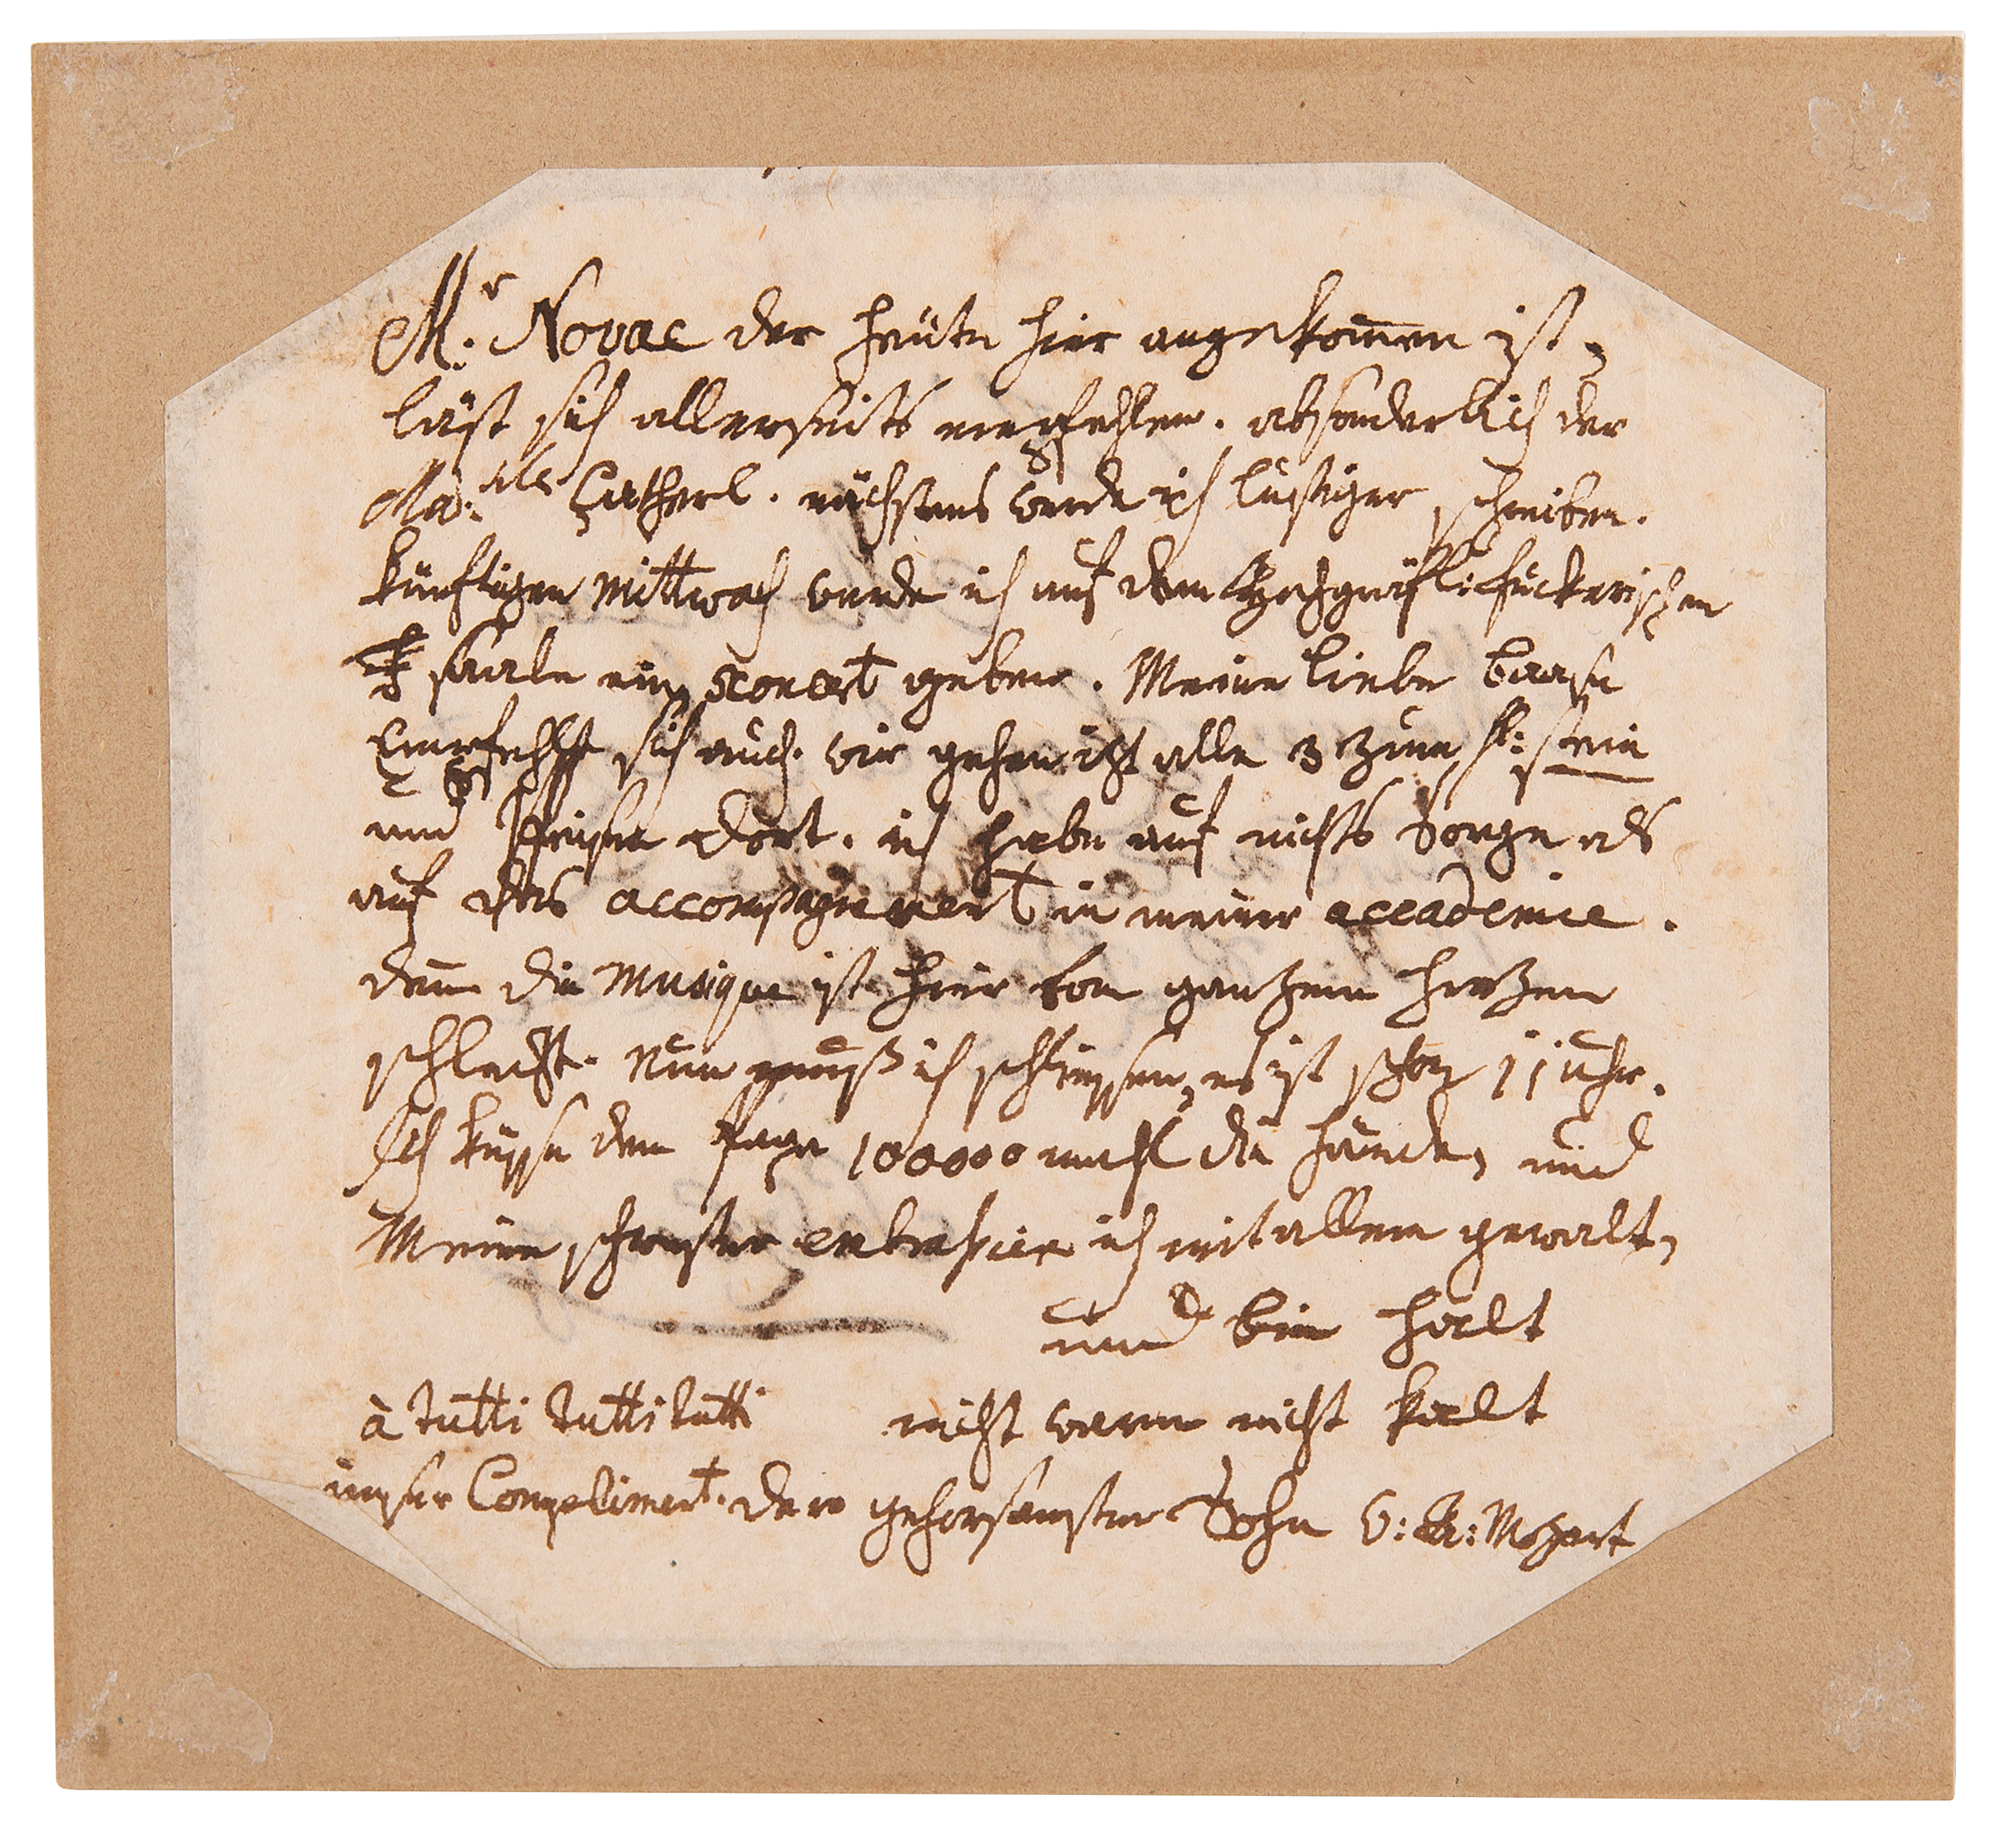 Mr. Novac der heüte hier angekom̄en ist,
läst sich allerseits empfehlen. absonderlich der
Ma:dlle Catherl. nächstens werde ich lustiger schreiben.
künftigen Mittwoch werde ich auf dem Hochgräfl: fuckerischen
saale ein concert geben. Meine liebe baase
Empfehlt sich auch. wir gehen izt alle 3 zum H: stein
und speisen dort. ich habe auf nichts Sorge als
auf das accompagnement in meiner accademie.
dan̄ die Musique ist hier von ganzem herzen
schlecht. Nun muß ich schliessen, es ist schon 11 uhr.
Ich küsse dem Papa 100000 mahl die hände, und
Meine schwester embrassire ich mit aller gewalt,
und bin halt
à tutti tutti tutti nicht warm nicht kalt
unser Compliment. dero gehorsamster Sohn W: A: Mozart